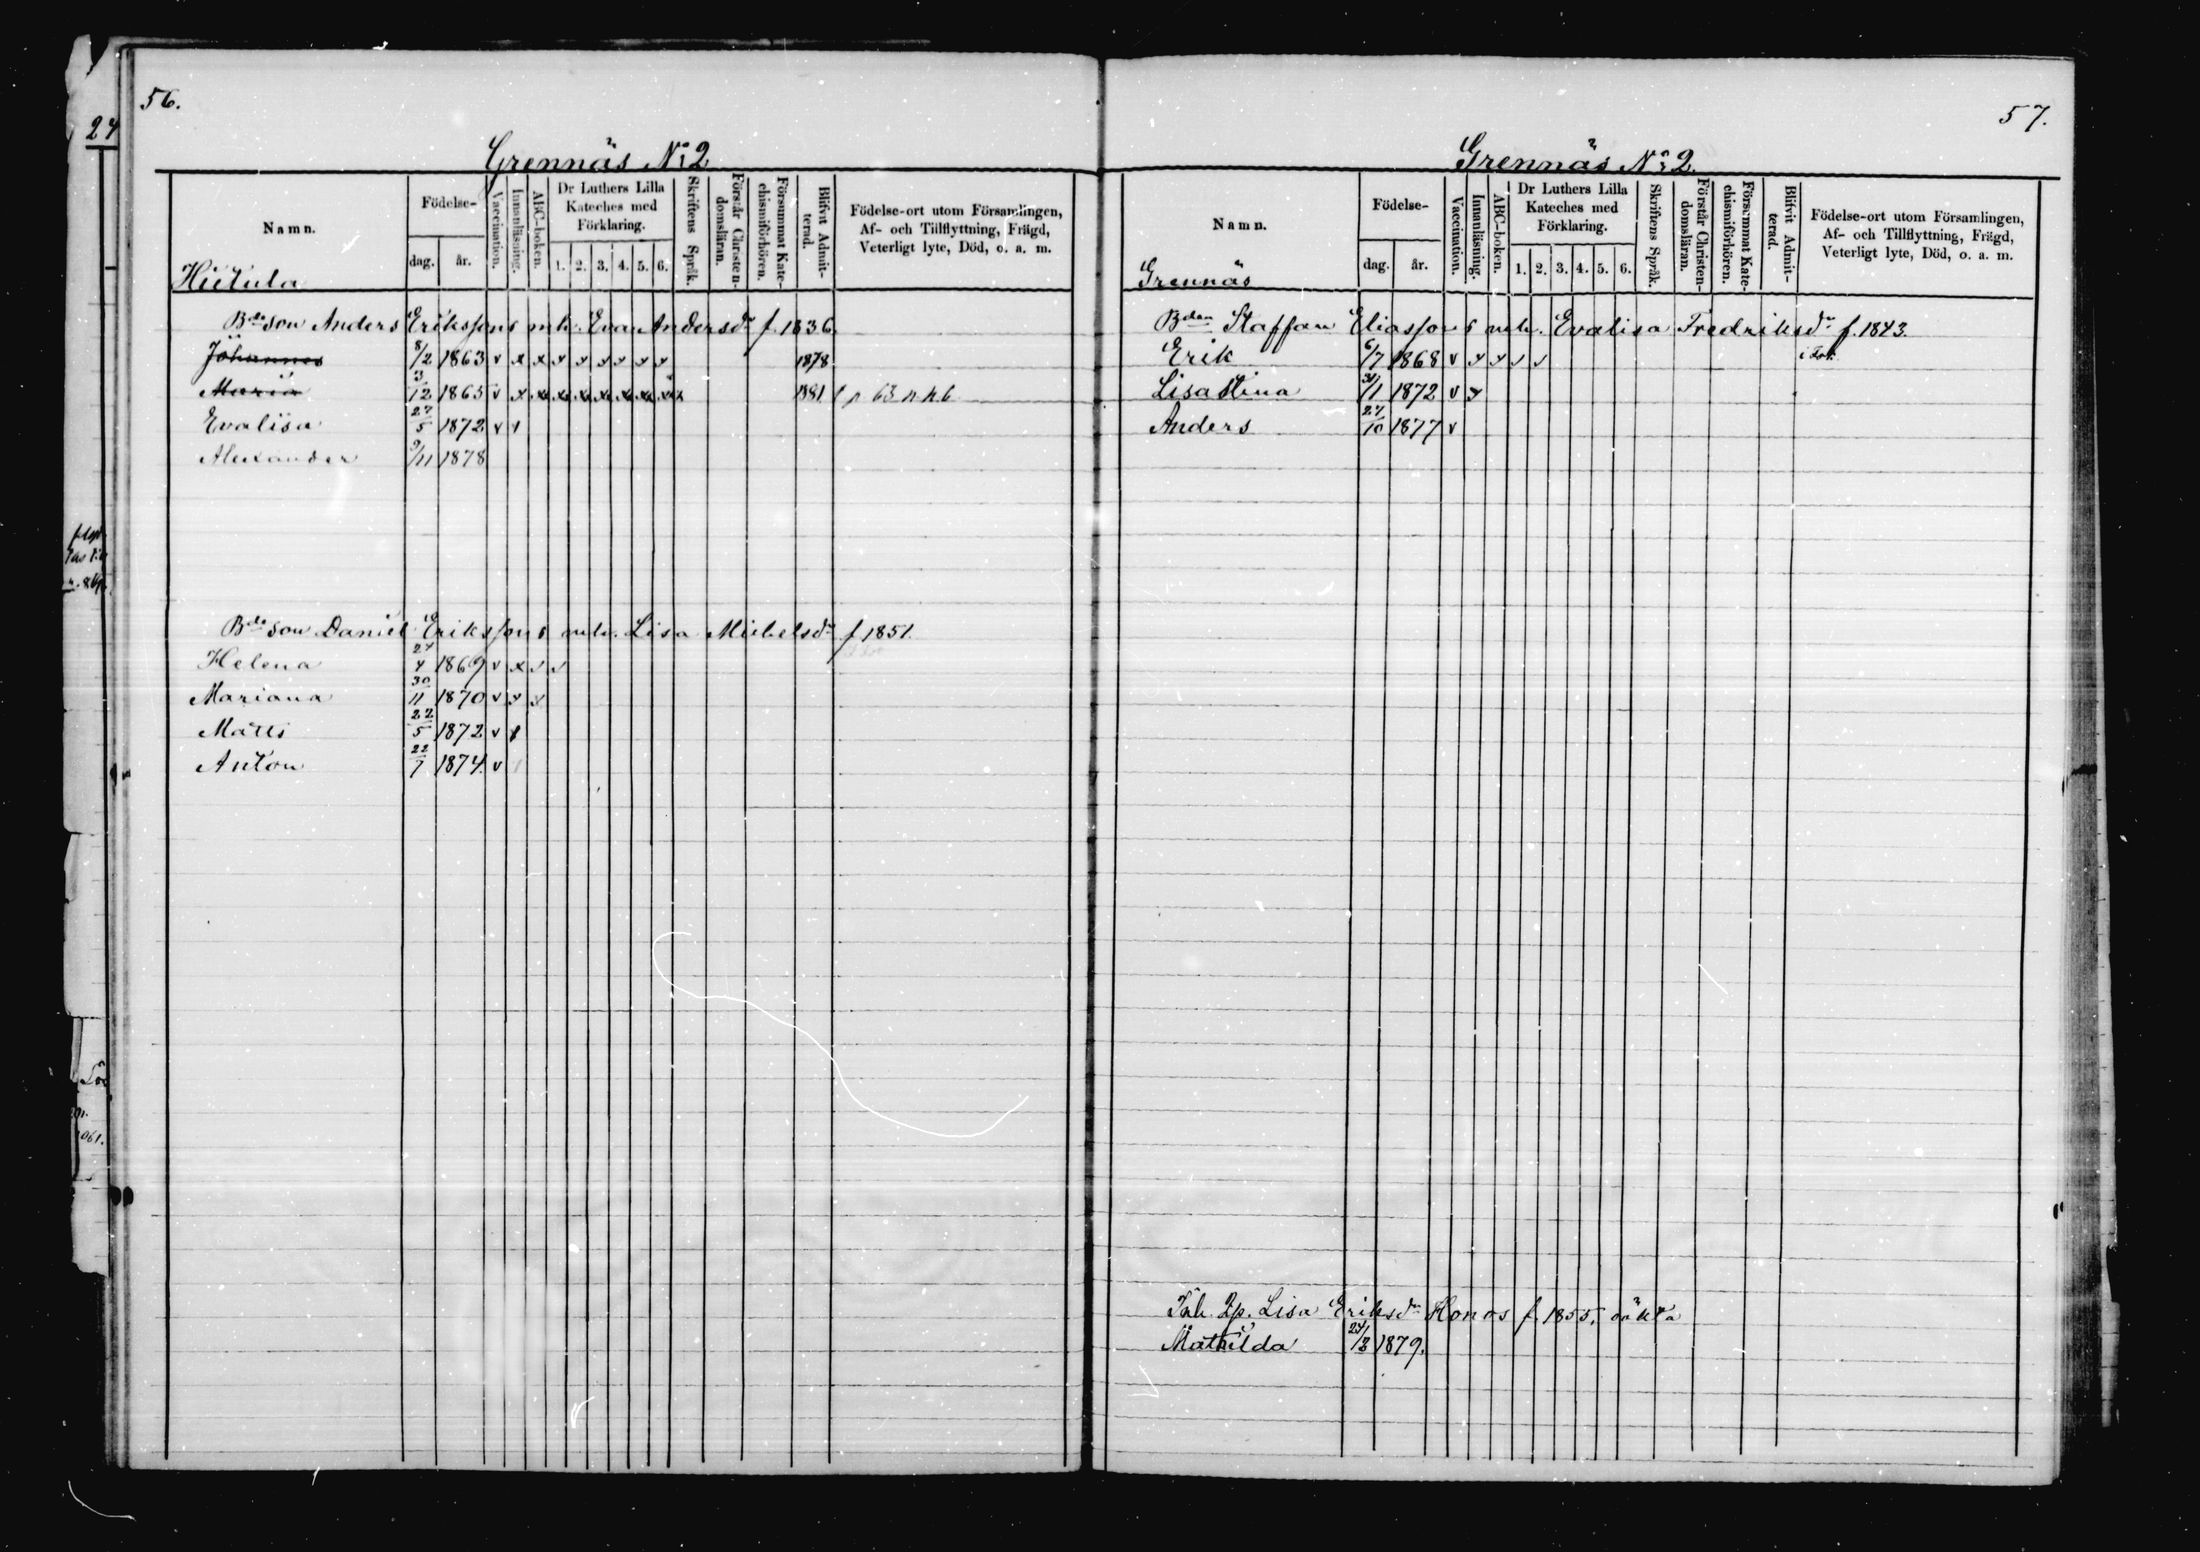 56.
Grennäs No 2
Namn.
Födelse-
dag.
år.
Vaccination.
Innanläsning.
ABC-boken.
Dr Luthers Lilla Kateches med Förklaring.
1. 2. 3. 4. 5. 6.
Skriftens Språk.
Förstår Christendomsläran.
Försummat Katechismiförhören.
Blifvit Admitterad.
Födelse-ort utom Församlingen,
Af- och Tillflyttning, Frägd,
Veterligt lyte, Död, o. a. m.
Hietula
Bdeson Anders Erikssons enk. Eva Andersdr f. 1836.
Johannes 8/2 1863 v x x x x x x x x 1878
Maria 3/12 1865 v x x x x x x x x 1881 p 63 n k b
Evalisa 27/5 1872 v v
Alexander 9/11 1878
Bdeson Daniel Erikssons enk. Lisa Michelsdr f 1851.
Helena 24/4 1869 v x v v
Mariana 30/11 1870 v x x
Matts 22/5 1872 v
Anton 22/7 1874. v
57.
Grennäs No 2.
Namn.
Födelse-
dag.
år.
Vaccination.
Innanläsning.
ABC-boken.
Dr Luthers Lilla Kateches med Förklaring.
1. 2. 3. 4. 5. 6.
Skriftens Språk.
Förstår Christendomsläran.
Försummat Katechismiförhören.
Blifvit Admitterad.
Födelse-ort utom Församlingen,
Af- och Tillflyttning, Frägd,
Veterligt lyte, Död, o. a. m.
Grennäs
Bden Staffan Eliassons enk. Evalisa Fredriksdr f. 1843.
Erik 6/7 1868 v x x v v
Lisa Stina 31/1 1872 v x
Anders 27/10 1877 v
Inh. Qp. Lisa Eriksdr Honos f. 1855, oäkta
Mathilda 1879.